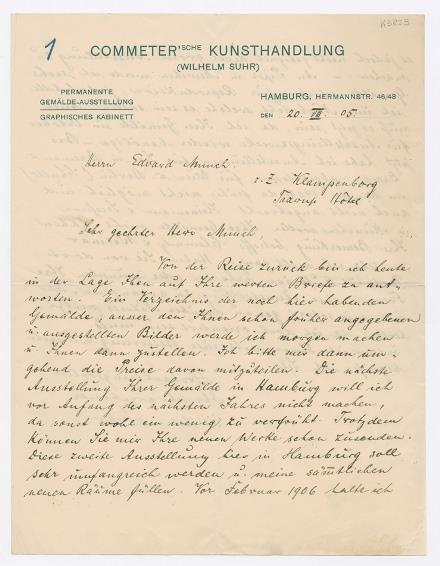 1
K3825
COMMETER'SCHE KUNSTHANDLUNG
(WILHELM SUHR)
PERMANENTE
GEMÄLDE-AUSSTELLUNG
GRAPHISCHES KABINETT
HAMBURG, HERMANNSTR. 46/48
DEN 20. VII. 05.
Herrn Edvard Munch
z. Z. Klampenborg
Taarup Hôtel
Sehr geehrter Herr Munch
Von der Reise zurück bin ich heute
in der Lage Ihnen auf Ihre werten Briefe zu ant-
worten. Ein Verzeichnis der noch hier habenden
Gemälde, ausser den Ihnen schon früher angegebenen
u. ausgestellten Bilder werde ich morgen machen
u. Ihnen dann zustellen. Ich bitte mir dann um-
gehend die Preise davon mitzuteilen. Die nächste
Ausstellung Ihrer Gemälde in Hamburg will ich
vor Anfang des nächsten Jahres nicht machen,
da sonst wohl ein wenig zu verfrüht. Trotzdem
können Sie mir Ihre neuen Werke schon zusenden.
Diese zweite Ausstellung hier in Hamburg soll
sehr umfangreich werden u. meine sämtlichen
neuen Räume füllen. Vor Februar 1906 halte ich